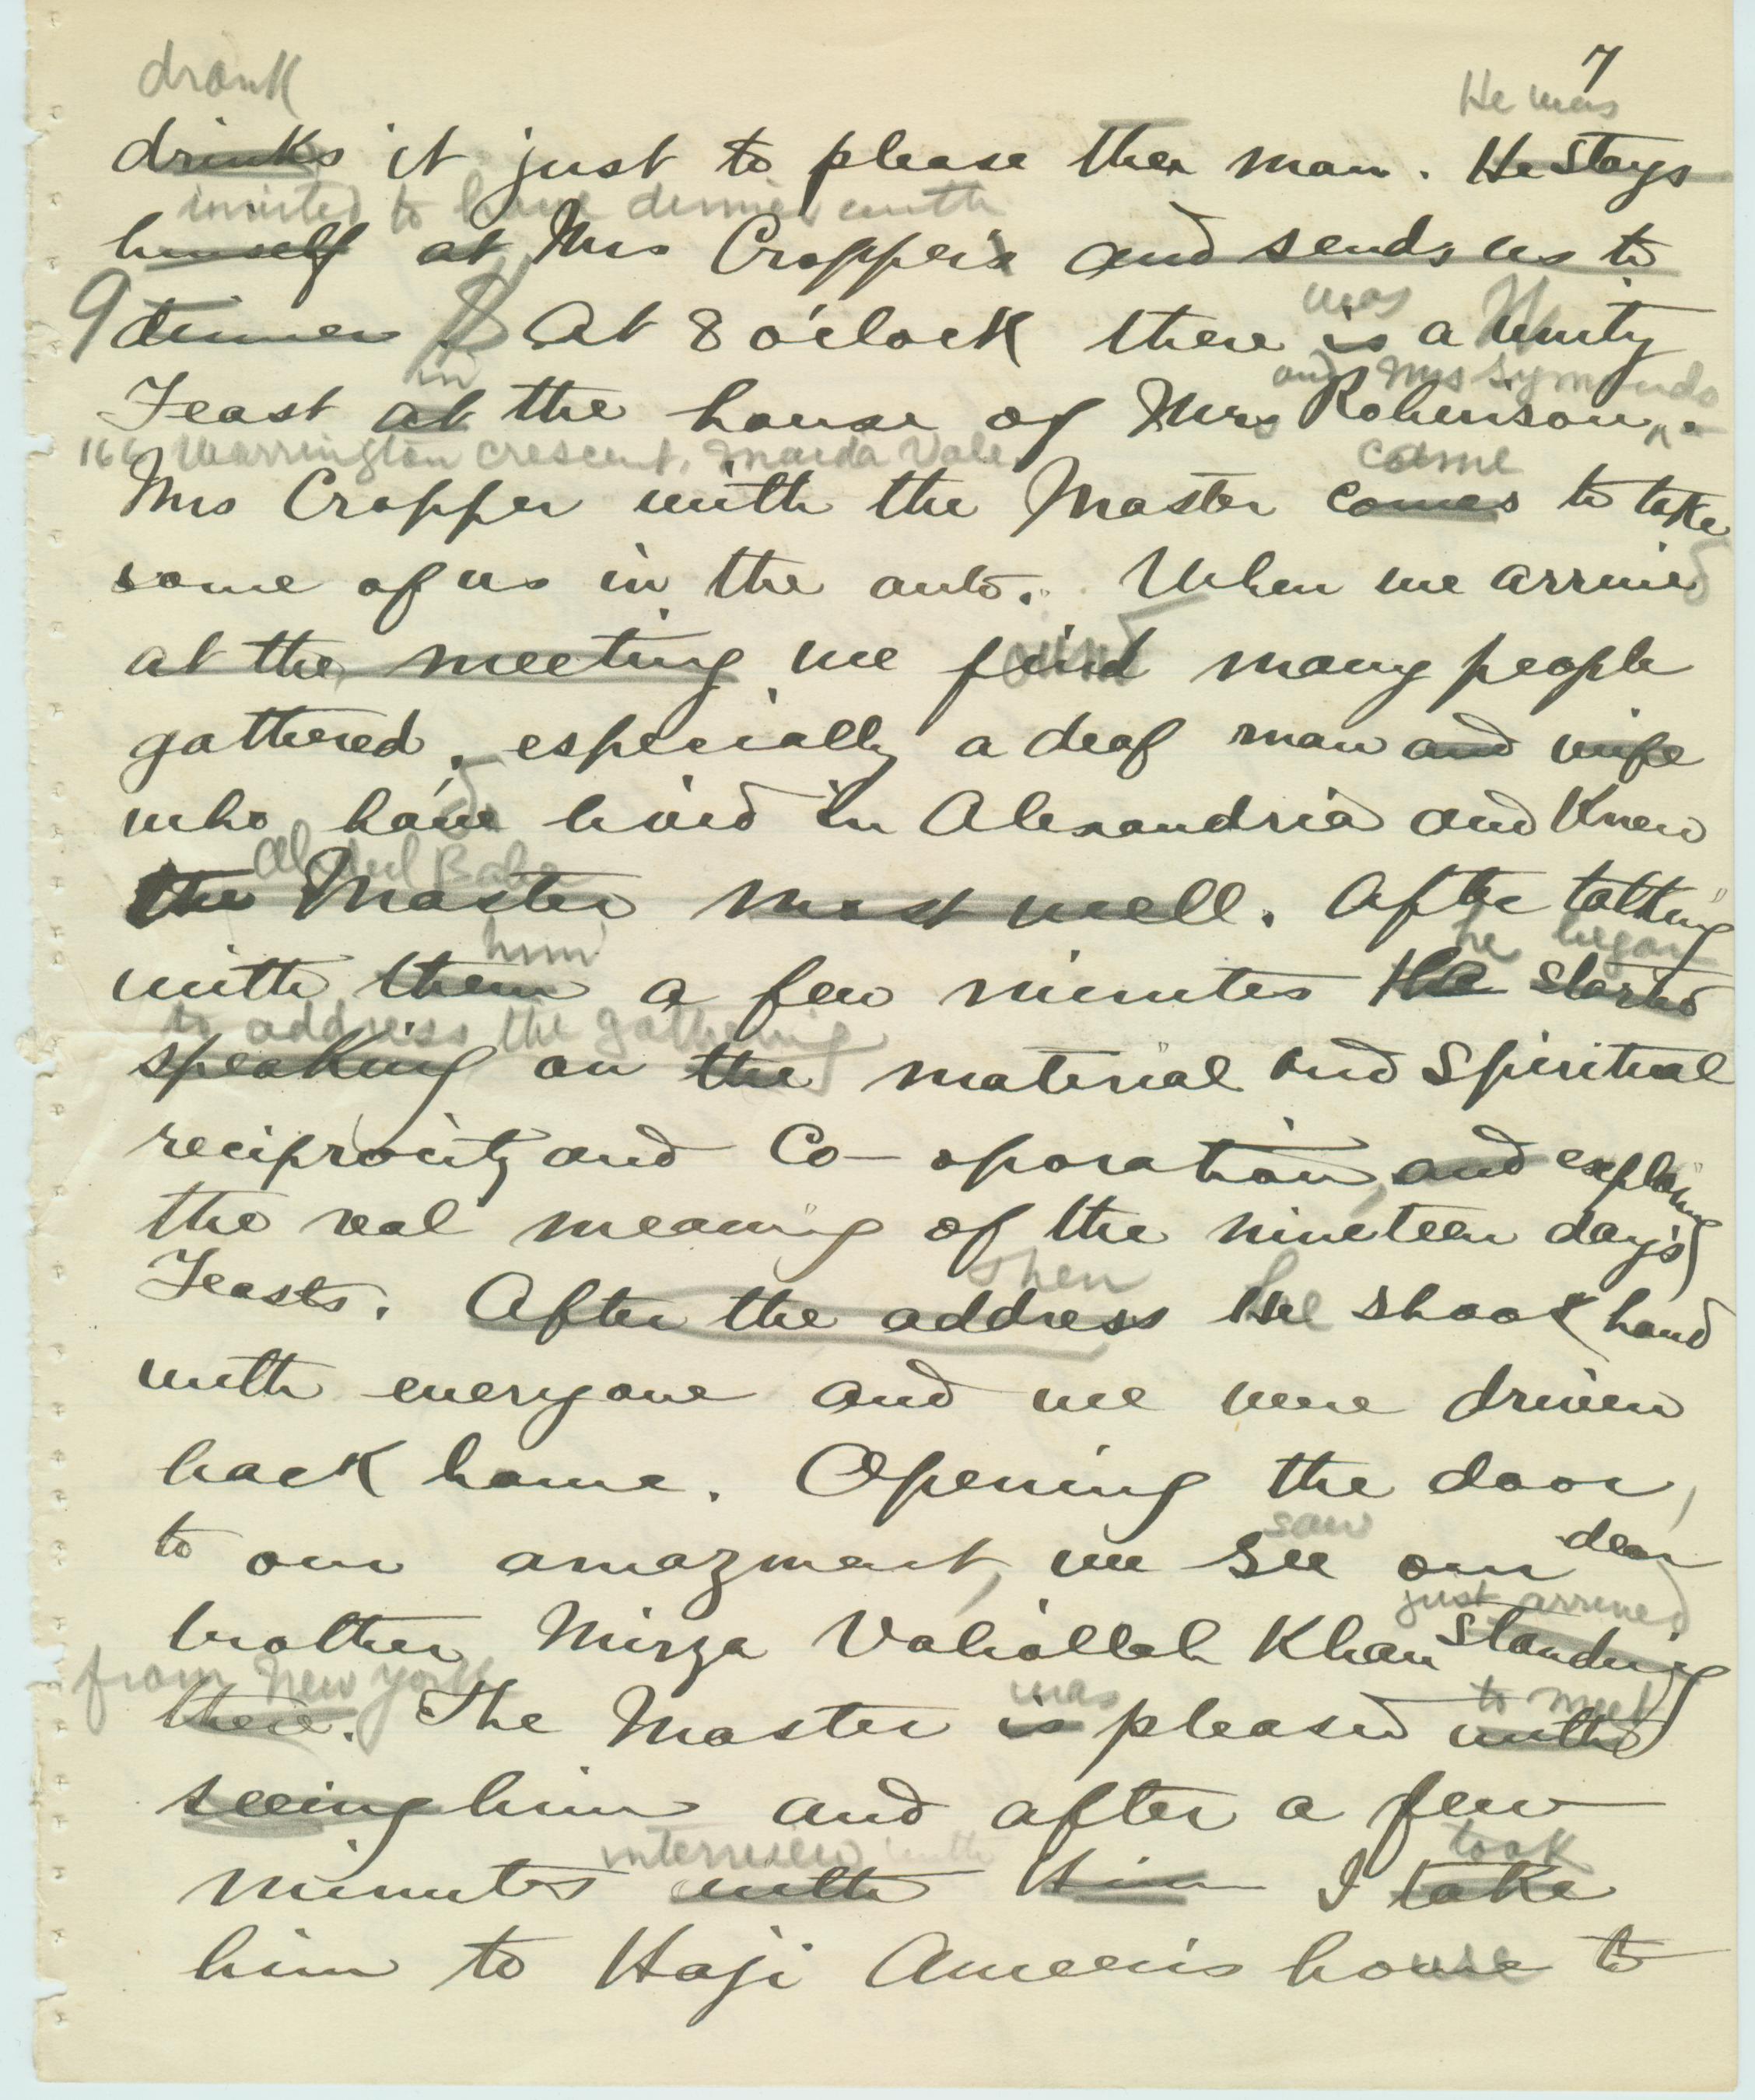 7
drank
He was
drinks it just to please the man. He stays
invited to have dinner with
himself at Mrs Cropper's and sends us to
was
dinner At 8 o'clock there is a Unity
in
and Mrs Symonds
Feast at the house of Mrs Robinson.
Warrington Crescent, Maida Vale.
came
Mrs Cropper with the Master comes to take
some of us in the auto. When we arrived
at the meeting we find many people
gathered, especially a deaf man and wife
who have lived in Alexandria and Knew
Abdul Baha
the Master most well. After talking
him
he began
with them a few minutes He started
to address the gathering
speaking on the material and Spiritual
reciprocity and Co-oporation, and explaining
the real meaning of the nineteen day's
Feasts. After the address He shook hand
Then
with everyone and we were driven
back home. Opening the door,
saw
to our amazment, we see our dear
just arrived
brother Mirza Valiollah Khan standing
from New York
was
to meet
there. The Master is pleased with
seeing him and after a few
interview with
took
minutes with Him I take
him to Haji Ameen's house to